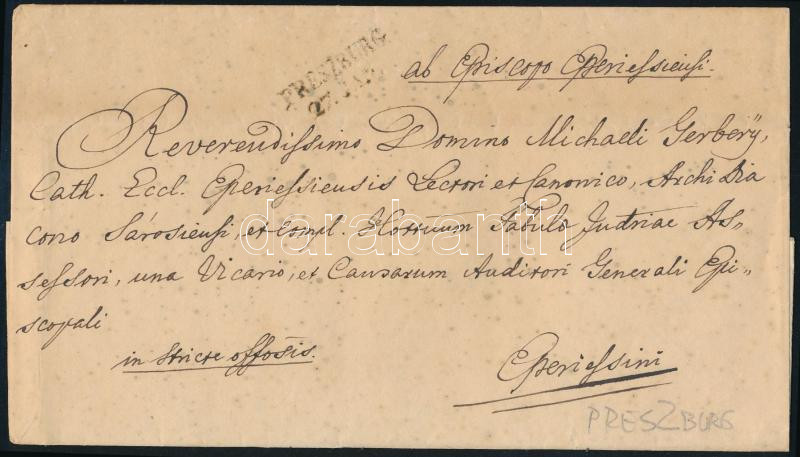 PRESZBURG
27. JAN.
ab Episcopo Eperiessiensi.
Reverendissimo Domino Michaeli Gerberÿ,
Cath. Eccl. Eperiessiensis Lectori et Canonico, Archi Dia
cono Sárosiensi, et Compl. Tabulo Judriae As=
sessori, una Vicario, et Causarum Auditori Generali Epi=
scopali
in Stricte offosis.
Eperiessini
PRESZBURG
darabanth